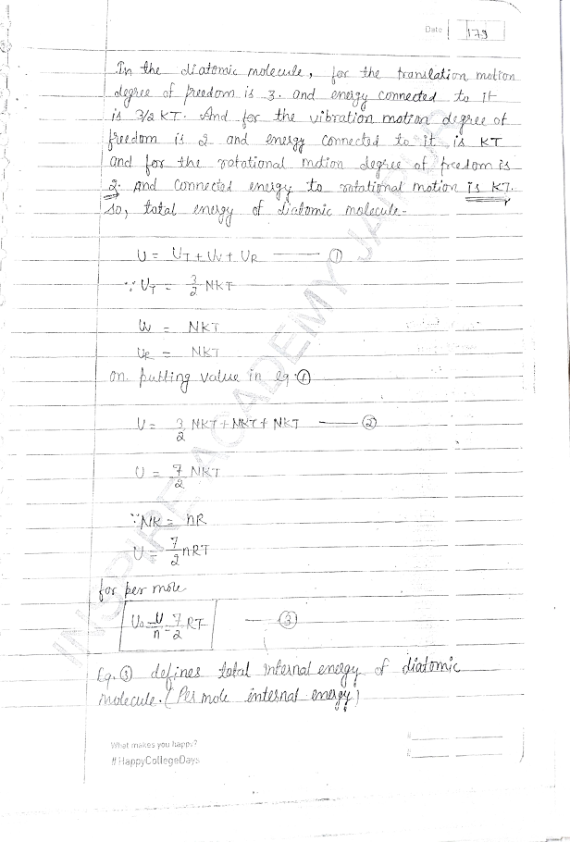 Date 179
In the diatomic molecule, for the translation motion
degree of freedom is 3. and energy connected to it
is 3/2 KT. And for the vibration motion degree of
freedom is 2 and energy connected to it is KT
and for the rotational motion degree of freedom is
2. And connected energy to rotational motion is KT.
so, total energy of diatomic molecule-
U = UT + UV + UR —— ①
∵ UT = 3/2 NKT
UV = NKT
UR = NKT
on putting value in eq. ①
U = 3/2 NKT + NKT + NKT —— ②
U = 7/2 NKT
∵ NK = nR
U = 7/2 nRT
for per mole
U0 = U/n = 7/2 RT —— ③
Eq. ③ defines total internal energy of diatomic
molecule. (Per mole internal energy)
What makes you happy?
#HappyCollegeDays
INSPIRE ACADEMY JAIPUR